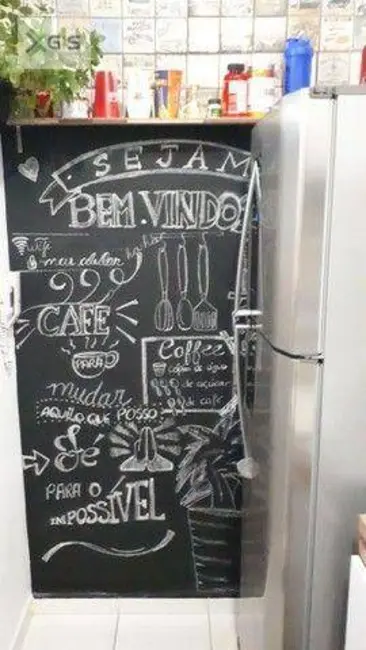 XGIS
SEJAM
BEM.VINDOS
wifi
meu celular
CAFÉ
PARA
mudar
AQUILO QUE POSSO
Fé
PARA O
IMPOSSÍVEL
Coffee
copos de água
de açúcar
de café